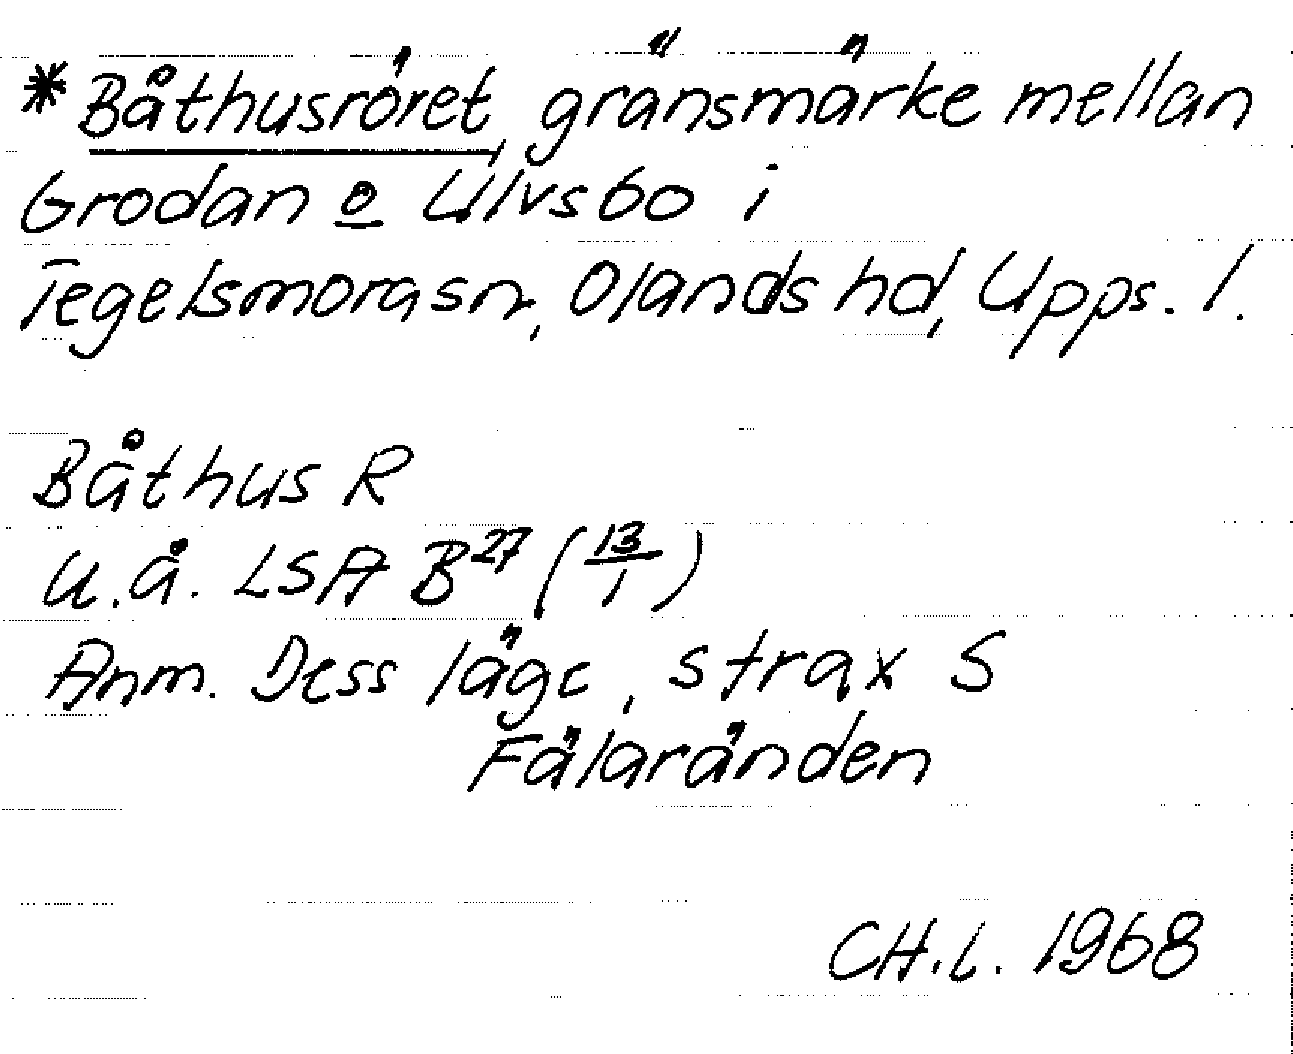 * Båthusröret, gränsmärke mellan
Grodan o Ulvsbo i
Tegelsmorasn, Olands hd, Upps. l.
Båthus R
u.å. LSA B27 (13/1)
Anm. Dess läge, strax S
Fälaränden
CH.L. 1968